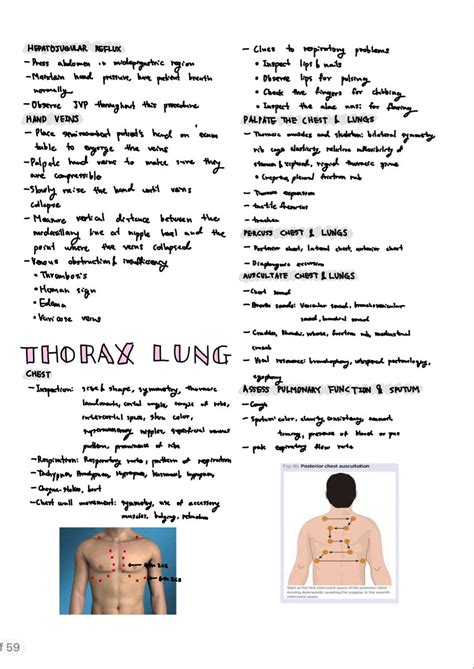 HEPATOJUGULAR REFLUX
- Press abdomen in midepigastric region
- Maintain hand pressure, have patient breath
normally
- Observe JVP throughout this procedure
HAND VEINS
- Place semirecumbent patient's hand on exam
table to engorge the veins
- Palpate hand veins to make sure they
are compressible
- Slowly raise the hand until veins
collapse
- Measure vertical distance between the
midaxillary line at nipple level and the
point where the veins collapsed
- Venous obstruction & insufficiency
• Thrombosis
• Homan sign
• Edema
• Varicose veins
THORAX LUNG
CHEST
- Inspection: size & shape, symmetry, thoracic
landmarks, costal angle, angle of ribs,
intercostal space, skin color,
supernumerary nipples, superficial venous
pattern, prominence of ribs
- Respiration: Respiratory rate, pattern of respiration
- Tachypnea, Bradypnea, Hyperpnea, kussmaul, hypopnea
- Cheyne-stokes, biot
- Chest wall movement: symmetry, use of accessory
muscles, bulging, retraction
f 59
- Clues to respiratory problems
• Inspect lips & nails
• Observe lips for pursing
• Check the fingers for clubbing
• Inspect the alae nasi for flaring
PALPATE THE CHEST & LUNGS
- Thoracic muscles and skeleton: bilateral symmetry,
rib cage elasticity, relative inflexibility of
sternum & xiphoid, rigid thoracic spine
• Crepitus, pleural friction rub
- Thorax expansion
- tactile fremitus
- trachea
PERCUSS CHEST & LUNGS
- Posterior chest, lateral chest, anterior chest
- Diaphragmatic excursion
AUSCULTATE CHEST & LUNGS
- Chest sound
- Breath sounds: Vesicular sound, bronchovesicular
sound, bronchial sound
- Crackles, Rhonchi, wheeze, friction rub, mediastinal
crunch
- Vocal resonance: bronchophony, whispered pectoriloquy,
egophony
ASSESS PULMONARY FUNCTION & SPUTUM
- Cough
- Sputum: color, clarity, consistency, amount,
timing, presence of blood or pus
- peak expiratory flow rate
Posterior chest auscultation
Start at the first intercostal space of the posterior chest
moving downwards, avoiding the scapula, to the seventh
intercostal space.